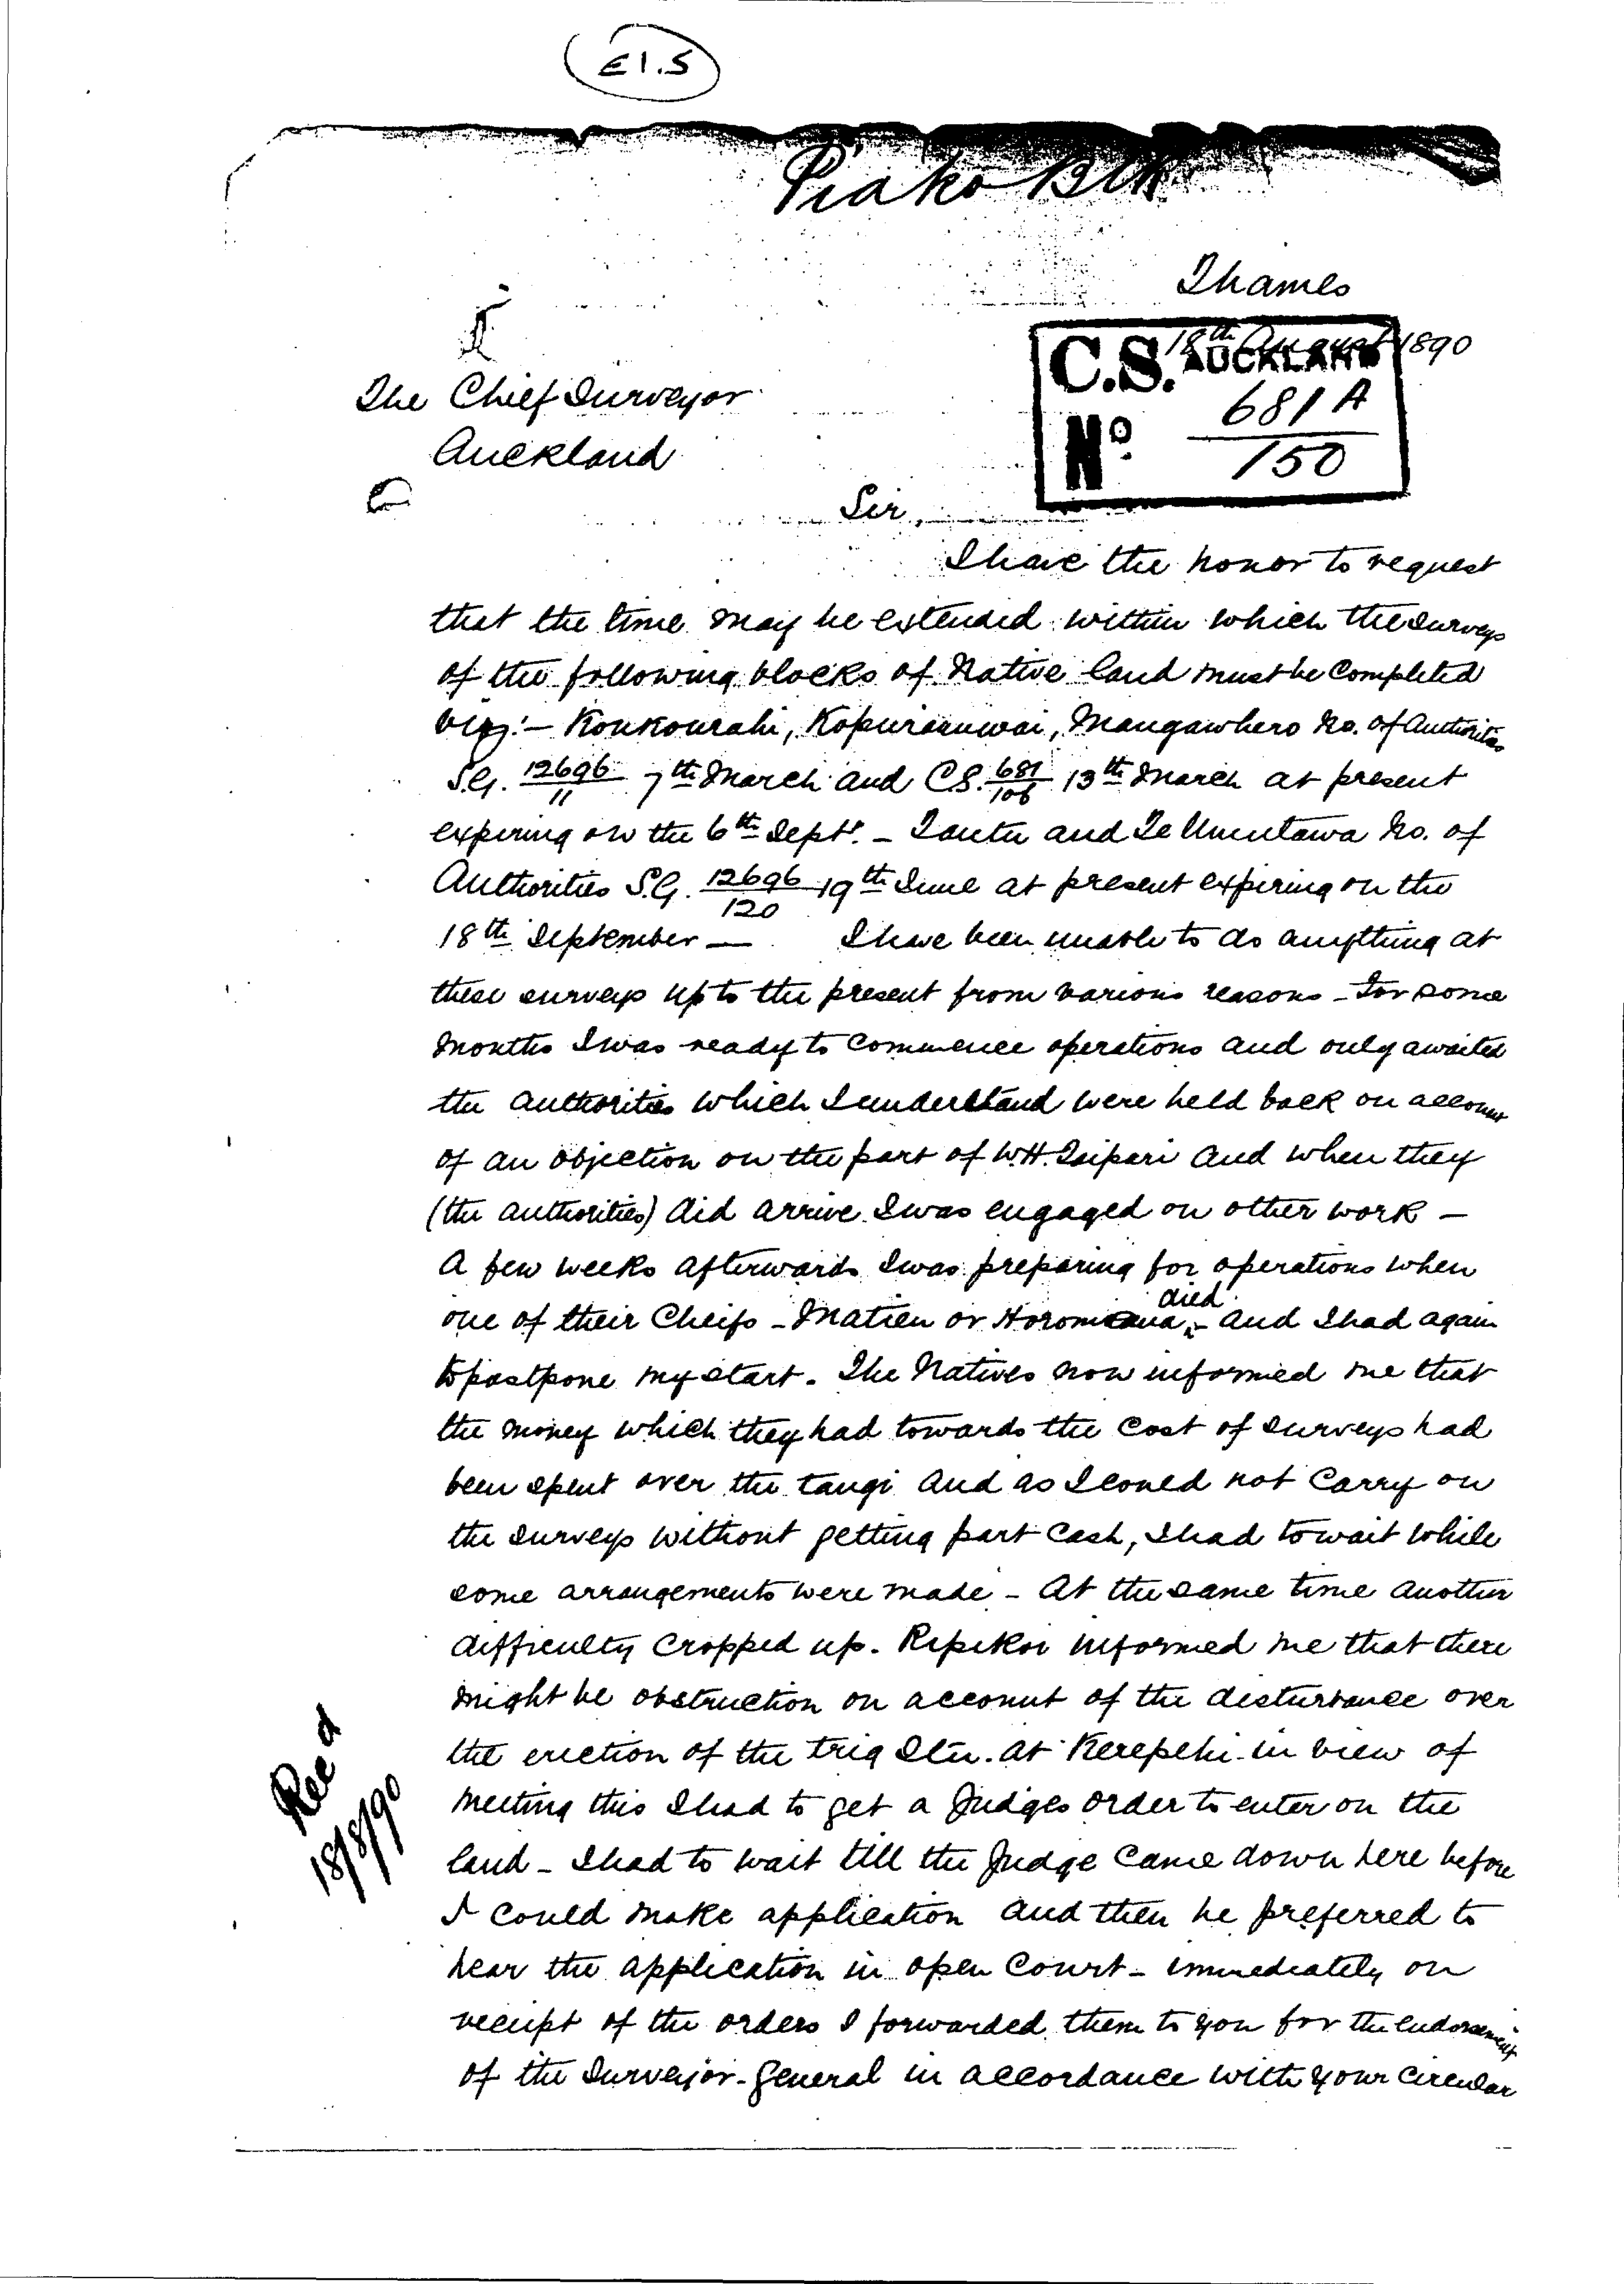 E1.5
Piako Blk
Thames
18th August 1890
C.S. AUCKLAND
No. 681A/150
The Chief Surveyor
Auckland
Sir,
I have the honor to request
that the time may be extended within which the surveys
of the following blocks of Native land must be completed
viz:- Koukourahi, Kopuraruwai, Mangawhero No. of Authorities
S.G. 12696/11 7th March and C.S. 681/106 13th March at present
expiring on the 6th Septr. - Tautu and Te Umutawa No. of
Authorities S.G. 12696/120 19th June at present expiring on the
18th September — I have been unable to do anything at
these surveys up to the present from various reasons - For some
months I was ready to commence operations and only awaited
the authorities which I understand were held back on account
of an objection on the part of W.H. Taipari and when they
(the authorities) did arrive I was engaged on other work —
A few weeks afterwards I was preparing for operations when
one of their Cheifs - Matiu or Horomona, died - and I had again
to postpone my start. The Natives now informed me that
the money which they had towards the cost of surveys had
been spent over the tangi and as I could not carry on
the surveys without getting part cash, I had to wait while
some arrangements were made - At the same time another
difficulty cropped up. Ripikoi informed me that there
might be obstruction on account of the disturbance over
the erection of the trig Stn. at Kerepehi in view of
meeting this I had to get a Judges order to enter on the
land - I had to wait till the Judge came down here before
I could make application and then he preferred to
hear the application in open Court - immediately on
receipt of the orders I forwarded them to you for the endorsement
of the Surveyor-General in accordance with your circular
Recd
18/8/90